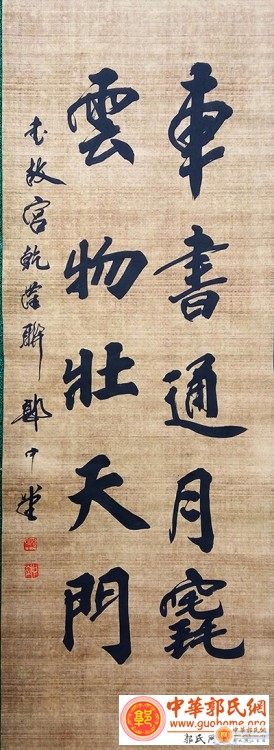 車書通月竁
雲物壯天門
故宮乾聯 郭中
中華郭氏網
www.guohome.org